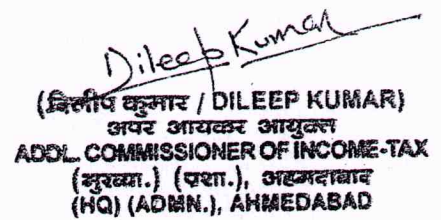 Dileep Kumar
(दिलीप कुमार / DILEEP KUMAR)
अपर आयकर आयुक्त
ADDL. COMMISSIONER OF INCOME-TAX
(मुख्या.) (प्रशा.), अहमदाबाद
(HQ) (ADMN.), AHMEDABAD